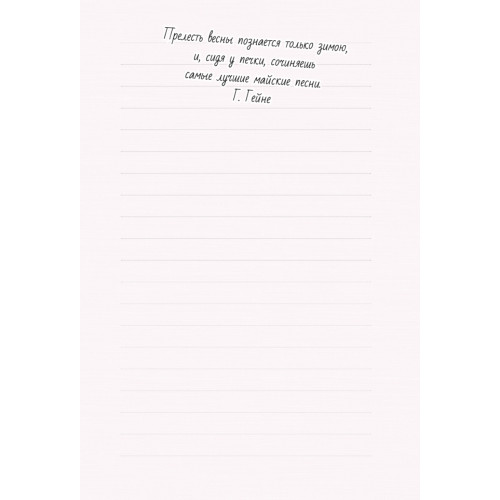 Прелесть весны познается только зимою,
и, сидя у печки, сочиняешь
самые лучшие майские песни
Г. Гейне